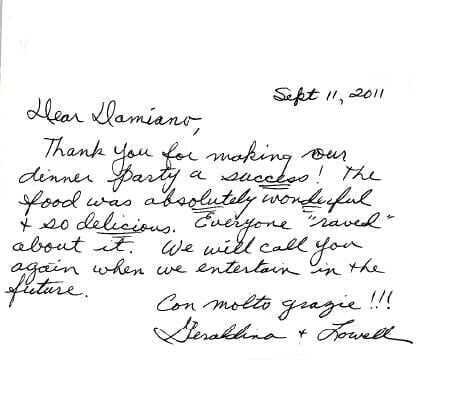 Sept 11, 2011
Dear Damiano,
Thank you for making our
dinner party a success! The
food was absolutely wonderful
+ so delicious. Everyone "raved"
about it. We will call you
again when we entertain in the
future.
Con molto grazie!!!
Geraldina + Lowell